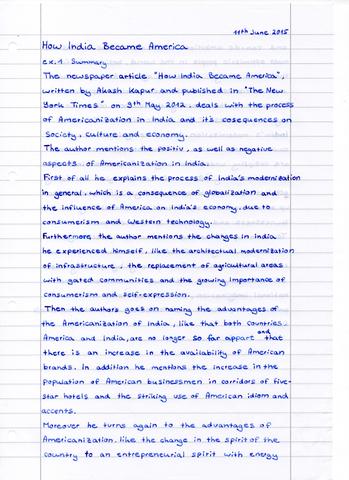 11th June 2015
How India Became America
ex.1 Summary
The newspaper article "How India Became America",
written by Akash Kapur and published in "The New
York Times" on 9th May 2012, deals with the process
of Americanization in India and it's cosequences on
Society, culture and economy.
The author mentions the positiv, as well as negative
aspects of Americanization in India.
First of all he explains the process of India's modernization
in general, which is a consequence of globalization and
the influence of America on India's economy, due to
consumerism and Western technology.
Furthermore, the author mentions the changes in India
he experienced himself, like the architectual modernization
of infrastructure, the replacement of agricultural areas
with gated communities and the growing importance of
consumerism and self-expression.
Then the authors goes on naming the advantages of
the Americanization of India, like that both countries,
America and India, are no longer so far appart and that
there is an increase in the availability of American
brands. In addition he mentions the increase in the
population of American businessmen in corridors of five-
star hotels and the striking use of American idiom and
accents.
Moreover he turns again to the advantages of
Americanization, like the change in the spirit of the
country to an entrepreneurial spirit with energy